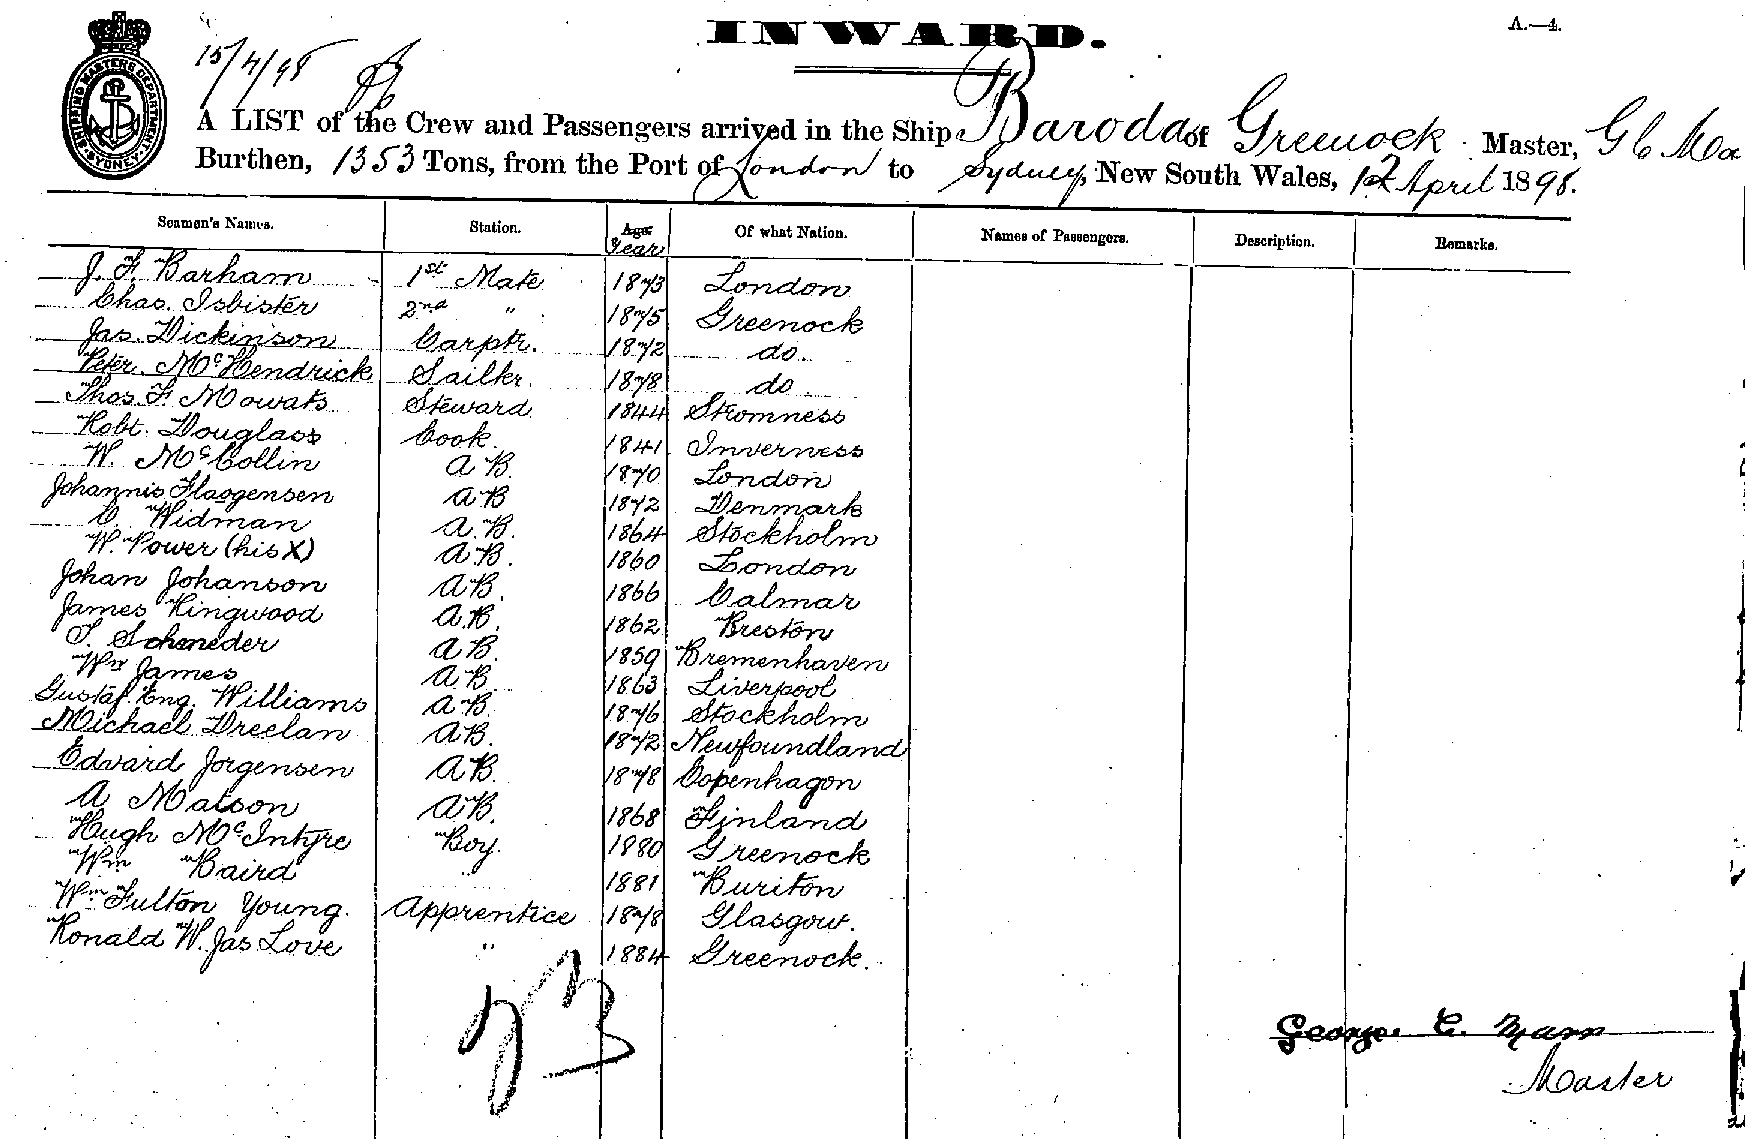 INWARD.
A.—4.
15/4/98
SHIPPING MASTERS DEPARTMENT SYDNEY
A LIST of the Crew and Passengers arrived in the Ship Baroda of Greenock Master, G C Ma
Burthen, 1353 Tons, from the Port of London to Sydney, New South Wales, 12 April 1898.
Seamen's Names. Station. Age Year Of what Nation. Names of Passengers. Description. Remarks.
J. F. Barham 1st Mate 1873 London
Chas. Isbister 2nd " 1875 Greenock
Jas. Dickinson Carptr. 1872 do
Peter McHendrick Sailkr. 1878 do
Thos. F. Mowats Steward 1844 Stromness
Robt. Douglass Cook 1841 Inverness
W. McCollin AB. 1870 London
Johannis Flasgensen AB 1872 Denmark
C. Widman A.B. 1864 Stockholm
W. Power (his X) AB. 1860 London
Johan Johanson AB. 1866 Calmar
James Kingwood A.B. 1862 Breston
T. Scheneder AB. 1859 Bremenhaven
Wm James AB. 1863 Liverpool
Gustaf Eng. Williams AB. 1876 Stockholm
Michael Dreelan AB. 1872 Newfoundland
Edvard Jorgensen AB. 1878 Copenhagon
A Matson AB. 1868 Finland
Hugh McIntyre Boy. 1880 Greenock
Wm Baird " 1881 Buriton
Wm Fulton Young. Apprentice 1878 Glasgow.
Ronald W. Jas Love " 1884 Greenock.
23
George C. Marr
Master